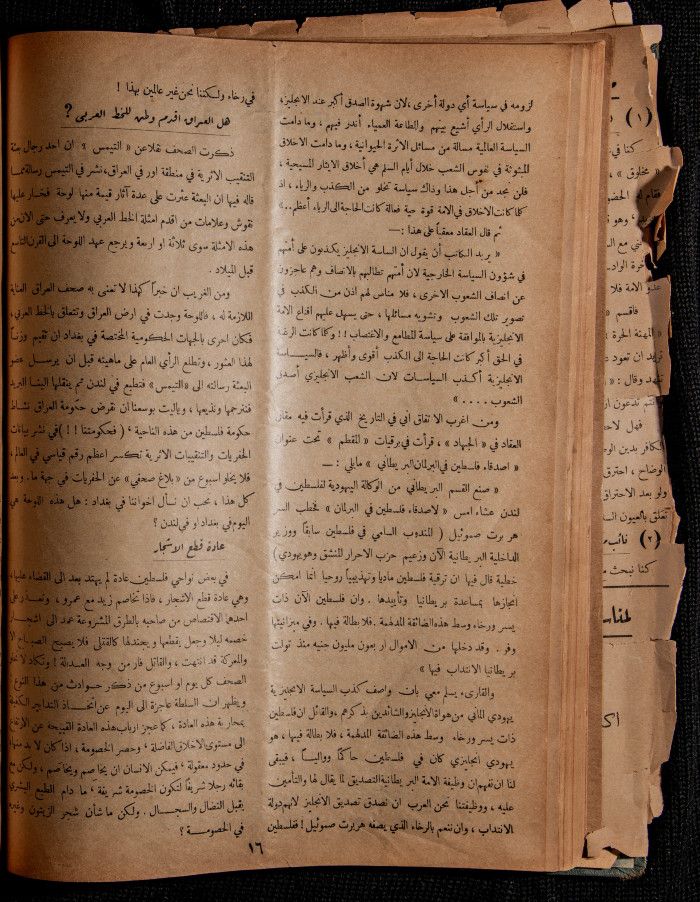 لزومه في سياسة أي دولة أخرى ، لان شهوة الصدق أكبر عند الانجليز،
واستقلال الرأي أشيع بينهم والطاعة العمياء أندر فيهم ، وما دامت
السياسة العالمية مسالة من مسائل الاثرة الحيوانية ، وما دامت الاخلاق
المبثوثة في نفوس الشعب خلال أيام السلم هي أخلاق الايثار المسيحية ،
فلن نجد من أجل هذا وذاك سياسة تخلو من الكذب والرياء ، اذ
كلما كانت الاخلاق في الامة قوة حية فعالة كانت الحاجة الى الرياء أعظم . . »
ثم قال العقاد معقباً على هذا : —
« يريد الكاتب أن يقول ان الساسة الانجليز يكذبون على أمتهم
في شؤون السياسة الخارجية لان أمتهم تطالبهم بالانصاف وهم عاجزون
عن انصاف الشعوب الاخرى ، فلا مناص لهم اذن من الكذب في
تصوير تلك الشعوب وتشويه مسائلها ، حتى يسهل عليهم اقناع الامة
الانجليزية بالموافقة على سياسة المطامع والاغتصاب ! ! وكلما كانت الرغبة
في الحق أكبر كانت الحاجة الى الكذب أقوى وأظهر ، فالسياسة
الانجليزية أكذب السياسات لان الشعب الانجليزي أصدق
الشعوب . . . . »
ومن اغرب الاتفاق اني في التاريخ الذي قرأت فيه مقال
العقاد في « الجهاد » ، قرأت في برقيات « المقطم » تحت عنوان
« اصدقاء فلسطين في البرلمان البريطاني » مايلي : —
« صنع القسم البريطاني من الوكالة اليهودية لفلسطين في
لندن عشاء امس « لاصدقاء فلسطين في البرلمان » فخطب السر
هربرت صموئيل ( المندوب السامي في فلسطين سابقاً ووزير
الداخلية البريطانية الآن وزعيم حزب الاحرار المنشق وهو يهودي )
خطبة قال فيها ان ترقية فلسطين ماديا وتهذيبيا روحيا انما امكن
انجازها بمساعدة بريطانيا وتأييدها . وان فلسطين الآن ذات
يسر ورخاء وسط هذه الضائقة المدلهمة . فلا بطالة فيها . وفي ميزانيتها
وفر . وقد دخلها من الاموال اربعون مليون جنيه منذ تولت
بريطانيا الانتداب فيها »
والقارىء يسلم معي بان واصف كذب السياسة الانجليزية
يهودي الماني من هواة الانجليز والشائدين بذكرهم ، والقائل ان فلسطين
ذات يسر ورخاء وسط هذه الضائقة المدلهمة ، فلا بطالة فيها ، هو
يهودي انجليزي كان في فلسطين حاكماً وواليساً ، فيبقى
لنا ان نفهم ان وظيفة الامة البريطانية التصديق لما يقال لها والتأمين
عليه ، ووظيفتنا نحن العرب ان نصدق تصديق الانجليز لانهم دولة
الانتداب ، وان ننعم بالرخاء الذي يصفه هربرت صموئيل ! ففلسطين
في رخاء ولكننا نحن غير عالمين بهذا !
هل العراق اقدم وطن للخط العربي ؟
ذكرت الصحف نقلا عن « التيمس » ان احد رجال بعثة
التنقيب الاثرية في منطقة اور في العراق ، نشر في التيمس رسالة مما
قاله فيها ان البعثة عثرت على عدة آثار قيمة منها لوحة فخار عليها
نقوش وعلامات من اقدم امثلة الخط العربي ولا يعرف حتى الان من
هذه الامثلة سوى ثلاثة او اربعة ويرجع عهد اللوحة الى القرن التاسع
قبل الميلاد .
ومن الغريب ان خبراً كهذا لا تعنى به صحف العراق العناية
اللازمة له ، فاللوحة وجدت في ارض العراق وتتعلق بالخط العربي ،
فكان احرى بالجهات الحكومية المختصة في بغداد ان تقيم وزناً
لهذا العثور ، وتطلع الرأي العام على ماهيته قبل ان يرسل عضو
البعثة رسالته الى « التيمس » فتطبع في لندن ثم ينقلها الينا البريد
فنترجمها ونذيعها ، وياليت بوسعنا ان نقرض حكومة العراق نشاط
حكومة فلسطين من هذه الناحية ، ( فحكومتنا ! ! ) في نشر بيانات
الحفريات والتنقيبات الاثرية تكسر اعظم رقم قياسي في العالم ،
فلا يخلو اسبوع من « بلاغ صحفي » عن الحفريات في جهة ما . وبعد
كل هذا ، نحب ان نسأل أخواننا في بغداد : هل هذه اللوحة هي
اليوم في بغداد او في لندن ؟
عادة قطع الاشجار
في بعض نواحي فلسطين عادة لم يهتد بعد الى القضاء عليها ،
وهي عادة قطع الاشجار ، فاذا تخاصم زيد مع عمرو ، وتعذر على
احدهما الاقتصاص من صاحبه بالطرق المشروعة عمد الى اشجار
خصمه ليلا وجعل يقطعها ويجندلها كالقتلى فلا يصبح الصباح الا
والمعركة قد انتهت ، والقاتل فار من وجه العدالة ! وتكاد لا تخلو
الصحف كل يوم او اسبوع من ذكر حوادث من هذا النوع
ويظهر ان السلطة عاجزة الى اليوم عن اتخاذ التدابير الكفيلة
بمحاربة هذه العادة ، كما عجز ارباب هذه العادة القبيحة عن الارتفاع
الى مستوى الاخلاق الفاضلة ، وحصر الخصومة ، اذا كان لا بد منها ،
في حدود معقولة ، فيمكن الانسان ان يخاصم ويخاصم ، ولكن مع
بقائه رجلا شريفاً لتكون الخصومة شريفة ، ما دام الطبع البشري
يقبل النضال والسجال . ولكن ما شأن شجر الزيتون وغيره
في الخصومة ؟
١٦
( ١ )
كنا في
« مخلوق » ،
فاقسم «
« المهنة الحرة »
وقال : «
فهل لاحظ
الكافر بدين
الوضاح ، احترق
ولو بعد الاحتراق
( ٢ ) نائب
كنا نبحث